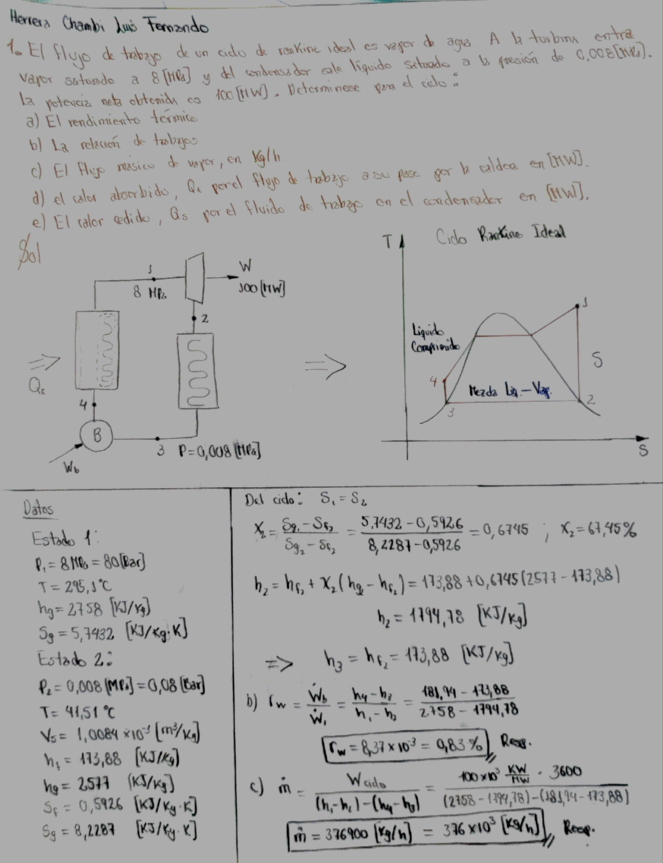 Herrera Chambi Luis Fernando
1. El flujo de trabajo de un ciclo de rankine ideal es vapor de agua. A la turbina entra
vapor saturado a 8[MPa] y del condensador sale líquido saturado a la presión de 0,008[MPa].
la potencia neta obtenida es 100[MW]. Determinese para el ciclo:
a) El rendimiento termico
b) La relación de trabajos
c) El flujo masico de vapor, en Kg/h
d) el calor absorbido, Qe por el flujo de trabajo a su paso por la caldea en [MW].
e) El calor cedido, Qs por el fluido de trabajo en el condensador en [MW].
Sol
T
Ciclo Rankine Ideal
1
8 MPa
W
100[MW]
2
Qe
4
B
Wb
3
P=0,008[MPa]
Líquido
Comprimido
1
4
S
Mezcla Liq.-Vap.
3
2
S
Datos
Estado 1:
P₁ = 8 MPa = 80[Bar]
T = 295,1°C
hg = 2758 [KJ/Kg]
Sg = 5,7432 [KJ/Kg·K]
Estado 2:
P₂ = 0,008[MPa] = 0,08[Bar]
T = 41,51 °C
Vs = 1,0084 x10⁻³ [m³/Kg]
hf = 173,88 [KJ/Kg]
hg = 2577 [KJ/Kg]
Sf = 0,5926 [KJ/Kg·K]
Sg = 8,2287 [KJ/Kg·K]
Del ciclo: S₁ = S₂
X₂ = (Sg₁ - Sf₂)/(Sg₂ - Sf₂) = (5,7432 - 0,5926)/(8,2287 - 0,5926) = 0,6745 ; X₂ = 67,45%
h₂ = hf₂ + X₂(hg - hf₂) = 173,88 + 0,6745(2577 - 173,88)
h₂ = 1794,78 [KJ/Kg]
=> h₃ = hf₂ = 173,88 [KJ/Kg]
b) rw = Ẇb/Ẇt = (h4 - h3)/(h1 - h2) = (181,94 - 173,88)/(2758 - 1794,78)
rw = 8,37 x10⁻³ = 0,83 % Resp.
c) ṁ = Wciclo/((h₁ - h₂) - (h4 - h3)) = (100 x10³ KW/MW · 3600)/((2758 - 1794,78) - (181,94 - 173,88))
ṁ = 376900 [Kg/h] = 376 x10³ [Kg/h] Resp.